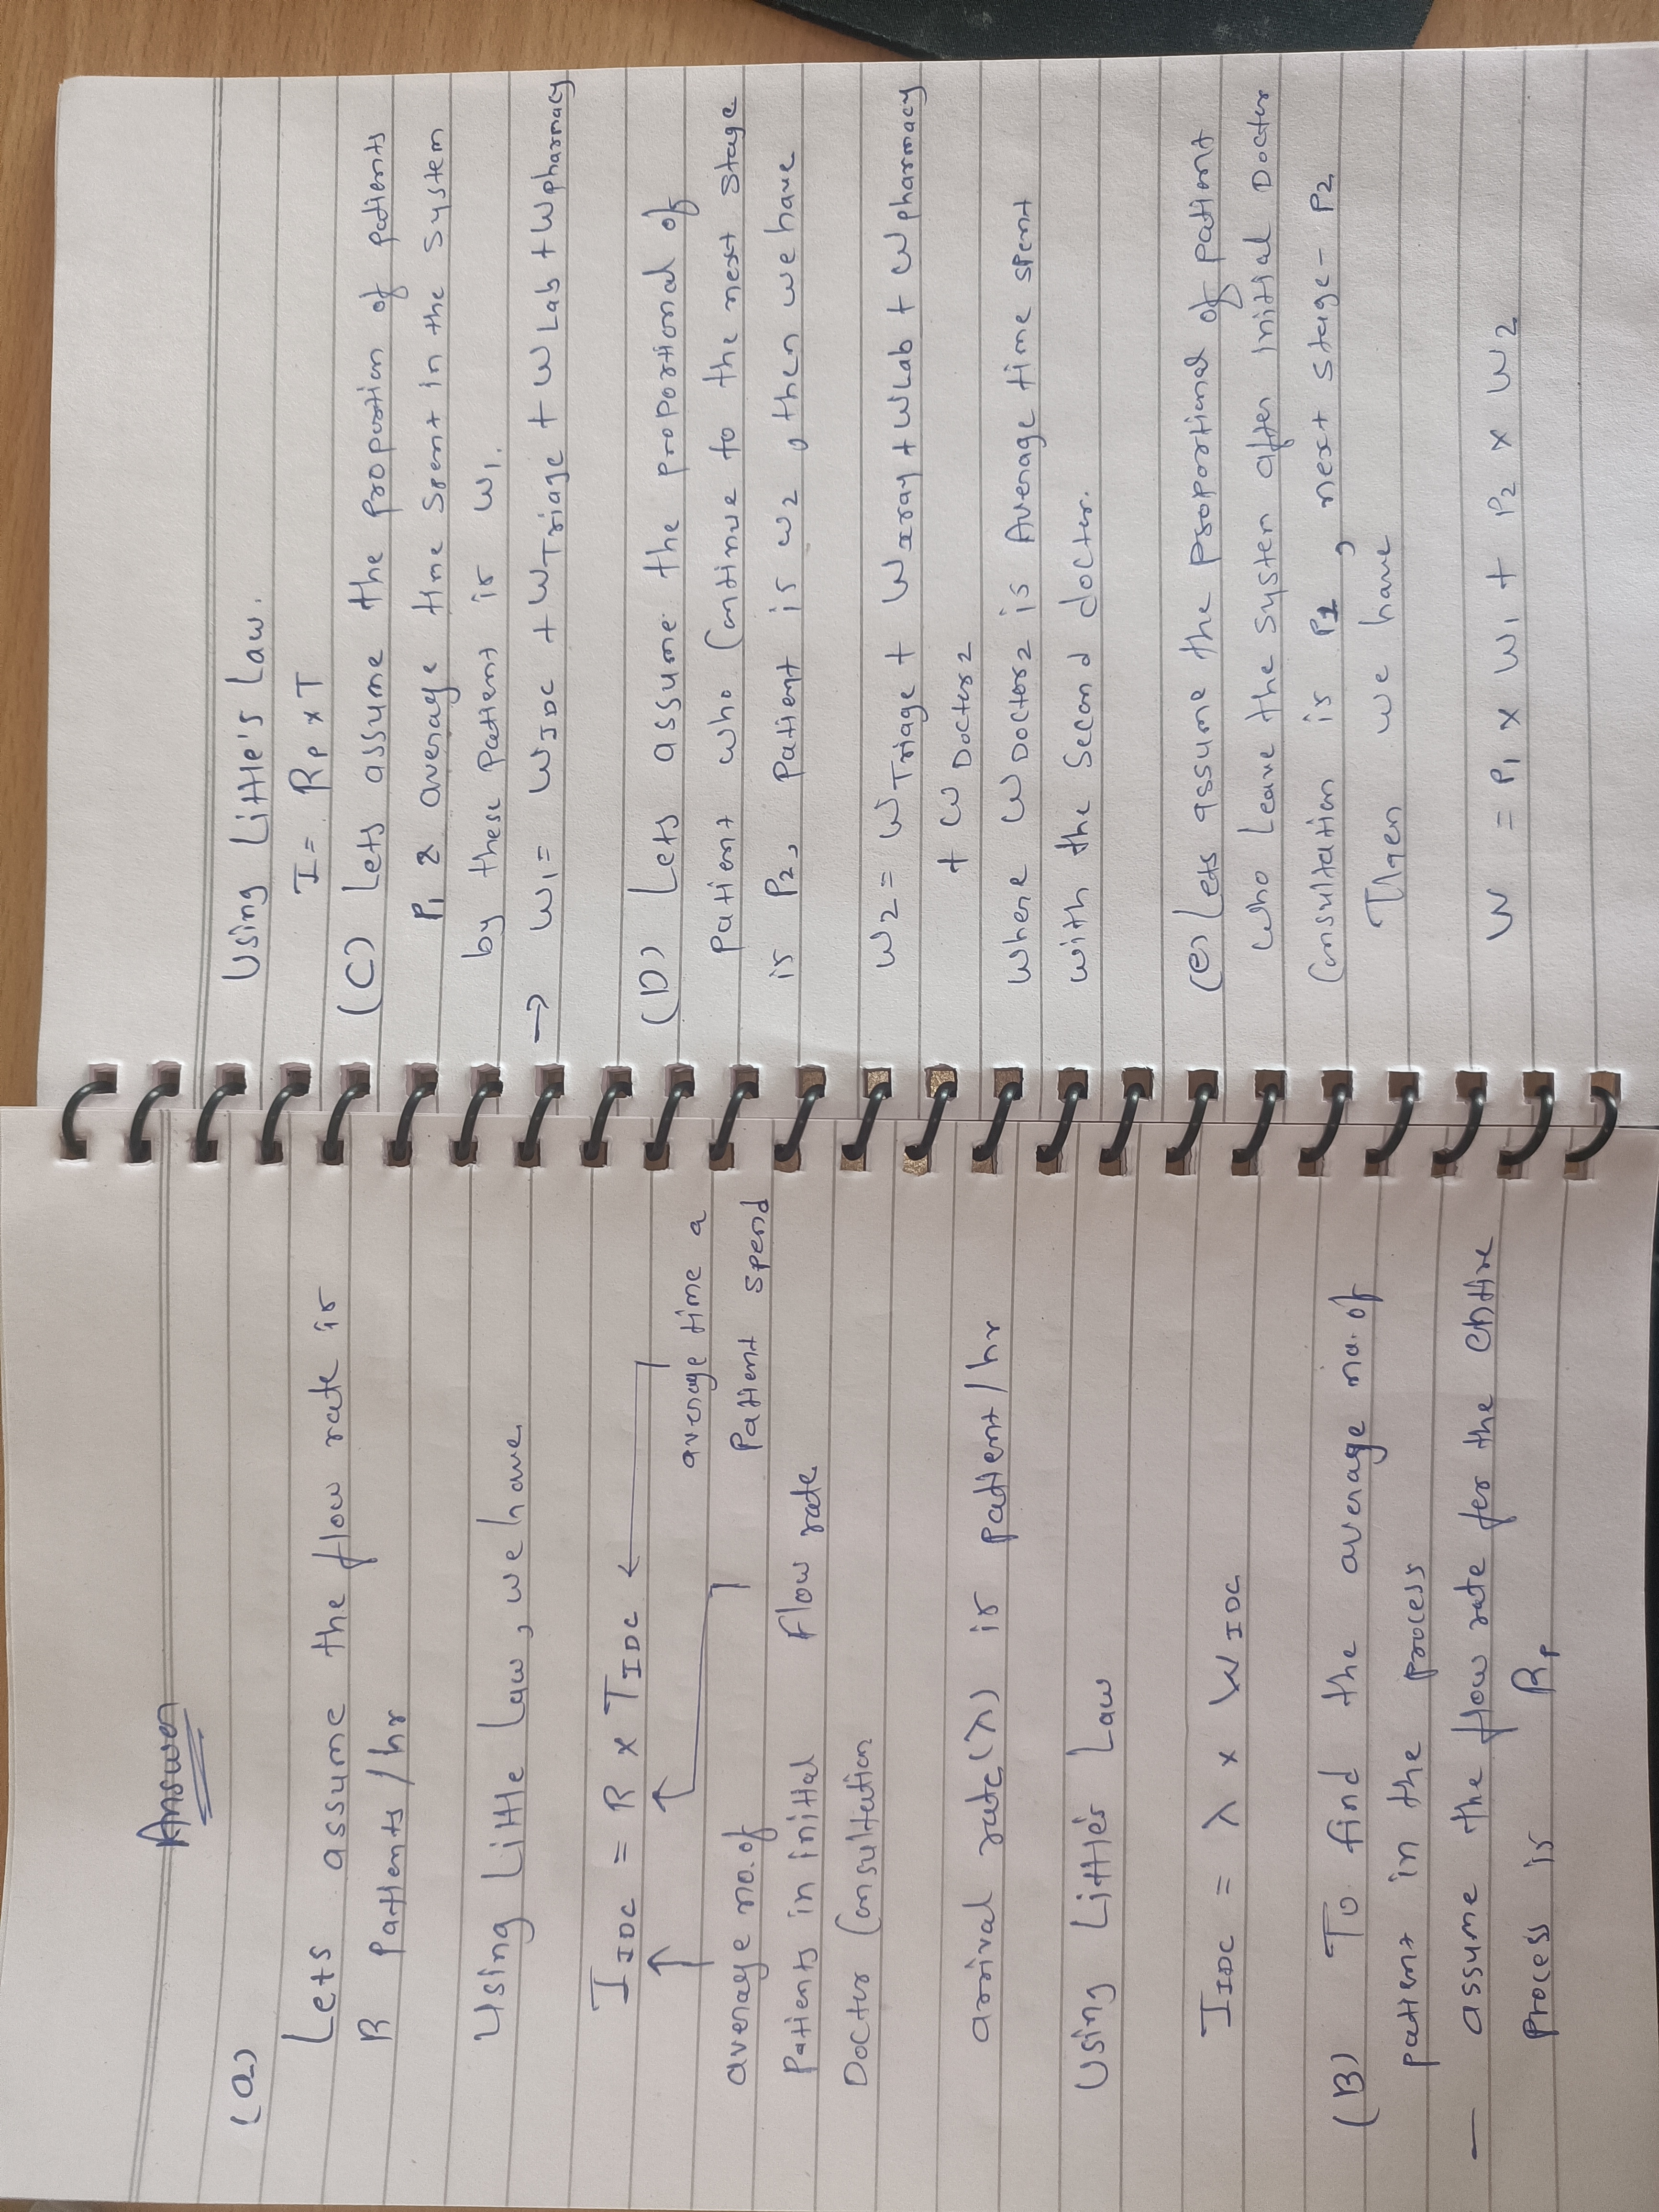 Answer
(a)
Lets assume the flow rate is
R patients/hr
Using Little Law, we have
I IDC = R x T IDC
average no. of
average time a
Patients in initial
Flow rate
Patient spend
Doctor Consultation
arrival rate(λ) is patient/hr
Using Little's Law
I IDC = λ x W IDC
(B) To find the average no. of
patient in the process
— assume the flow rate for the entire
process is Rp
Using Little's Law.
I = Rp x T
(C) Lets assume the proportion of patients
P1 & average time spent in the system
by these patient is W1.
→ W1 = W IDC + W Triage + W Lab + W pharmacy
(D) Lets assume the proportional of
patient who Continue to the next stage
is P2, patient is w2, then we have
W2 = W Triage + W xray + W Lab + W pharmacy
+ W Doctor2
where W Doctor2 is Average time spent
with the second doctor.
(e) Lets assume the proportional of patient
who leave the system after initial Doctor
Consultation is P1, next stage - P2
Then we have
W = P1 x W1 + P2 x W2